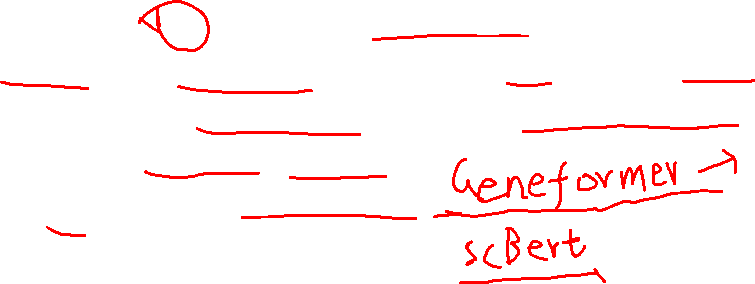 Geneformer →
scBert